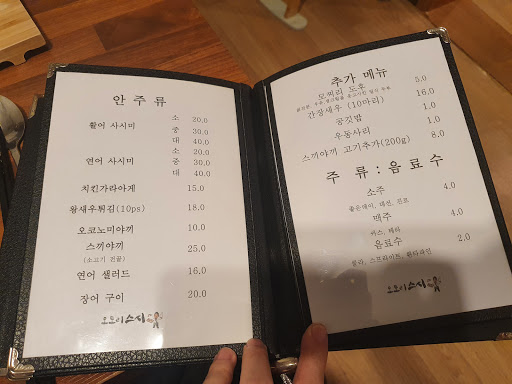 안 주 류
활어 사시미
소 20.0
중 30.0
대 40.0
연어 사시미
소 20.0
중 30.0
대 40.0
치킨가라아게 15.0
왕새우튀김(10ps) 18.0
오코노미야끼 10.0
스끼야끼 25.0
(소고기 전골)
연어 샐러드 16.0
장어 구이 20.0
오토이스시
추가 메뉴
모찌리 도후 5.0
간장새우 (10마리) 16.0
공깃밥 1.0
우동사리 1.0
스끼야끼 고기추가(200g) 8.0
주 류 : 음료수
소주 4.0
좋은데이, 대선, 진로
맥주 4.0
카스, 테라
음료수 2.0
콜라, 스프라이트, 환타파인
오토이스시